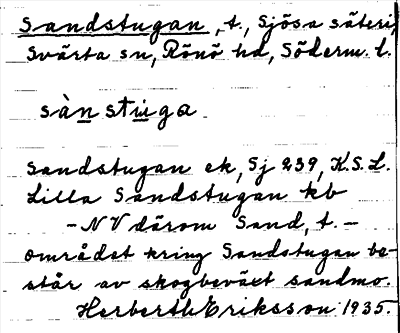 Sandstugan, t., Sjösa säteri,
Svärta sn, Rönö hd, Söderm. l.
sànstuga
Sandstugan ek, Sj 239, K.S.L.
Lilla Sandstugan kb
- NV därom Sand, t. -
området kring Sandstugan be-
står av skogbeväxt sandmo.
Herbert Eriksson 1935.